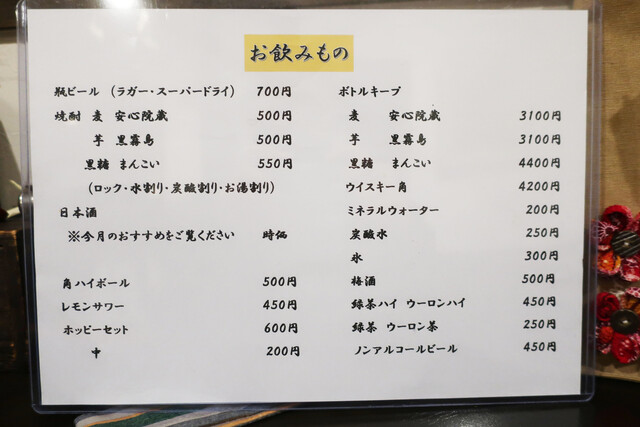 お飲みもの
瓶ビール （ラガー・スーパードライ） 700円
焼酎 麦 安心院蔵 500円
芋 黒霧島 500円
黒糖 まんこい 550円
（ロック・水割り・炭酸割り・お湯割り）
日本酒
※今月のおすすめをご覧ください 時価
角ハイボール 500円
レモンサワー 450円
ホッピーセット 600円
中 200円
ボトルキープ
麦 安心院蔵 3100円
芋 黒霧島 3100円
黒糖 まんこい 4400円
ウイスキー角 4200円
ミネラルウォーター 200円
炭酸水 250円
氷 300円
梅酒 500円
緑茶ハイ ウーロンハイ 450円
緑茶 ウーロン茶 250円
ノンアルコールビール 450円